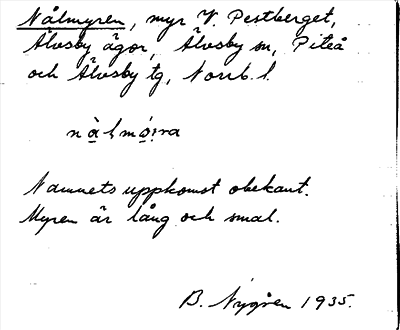 Nålmyren, myr V. Pestberget,
Älvsby ägor, Älvsby sn, Piteå
och Älvsby tg, Norrb. l.
Namnets uppkomst obekant.
Myren är lång och smal.
B. Nygren 1935.